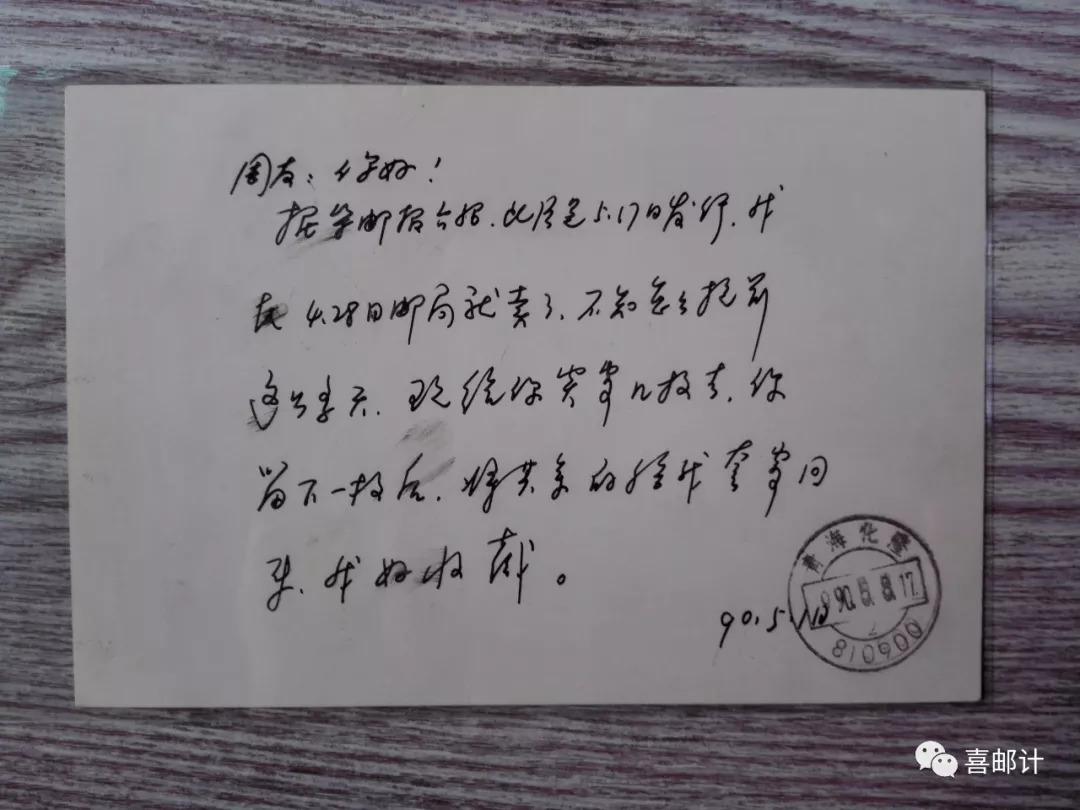 周友：你好！
据集邮报介绍，此片是5.17日发行，我
在4.28日邮局就卖了，不知怎么提前
这么多天，现给你实寄几枚去，你
留下一枚后，将其余的给我套寄回
来，我好收藏。
90.5.
青海化隆
90.5.8.17
2
810900
喜邮计